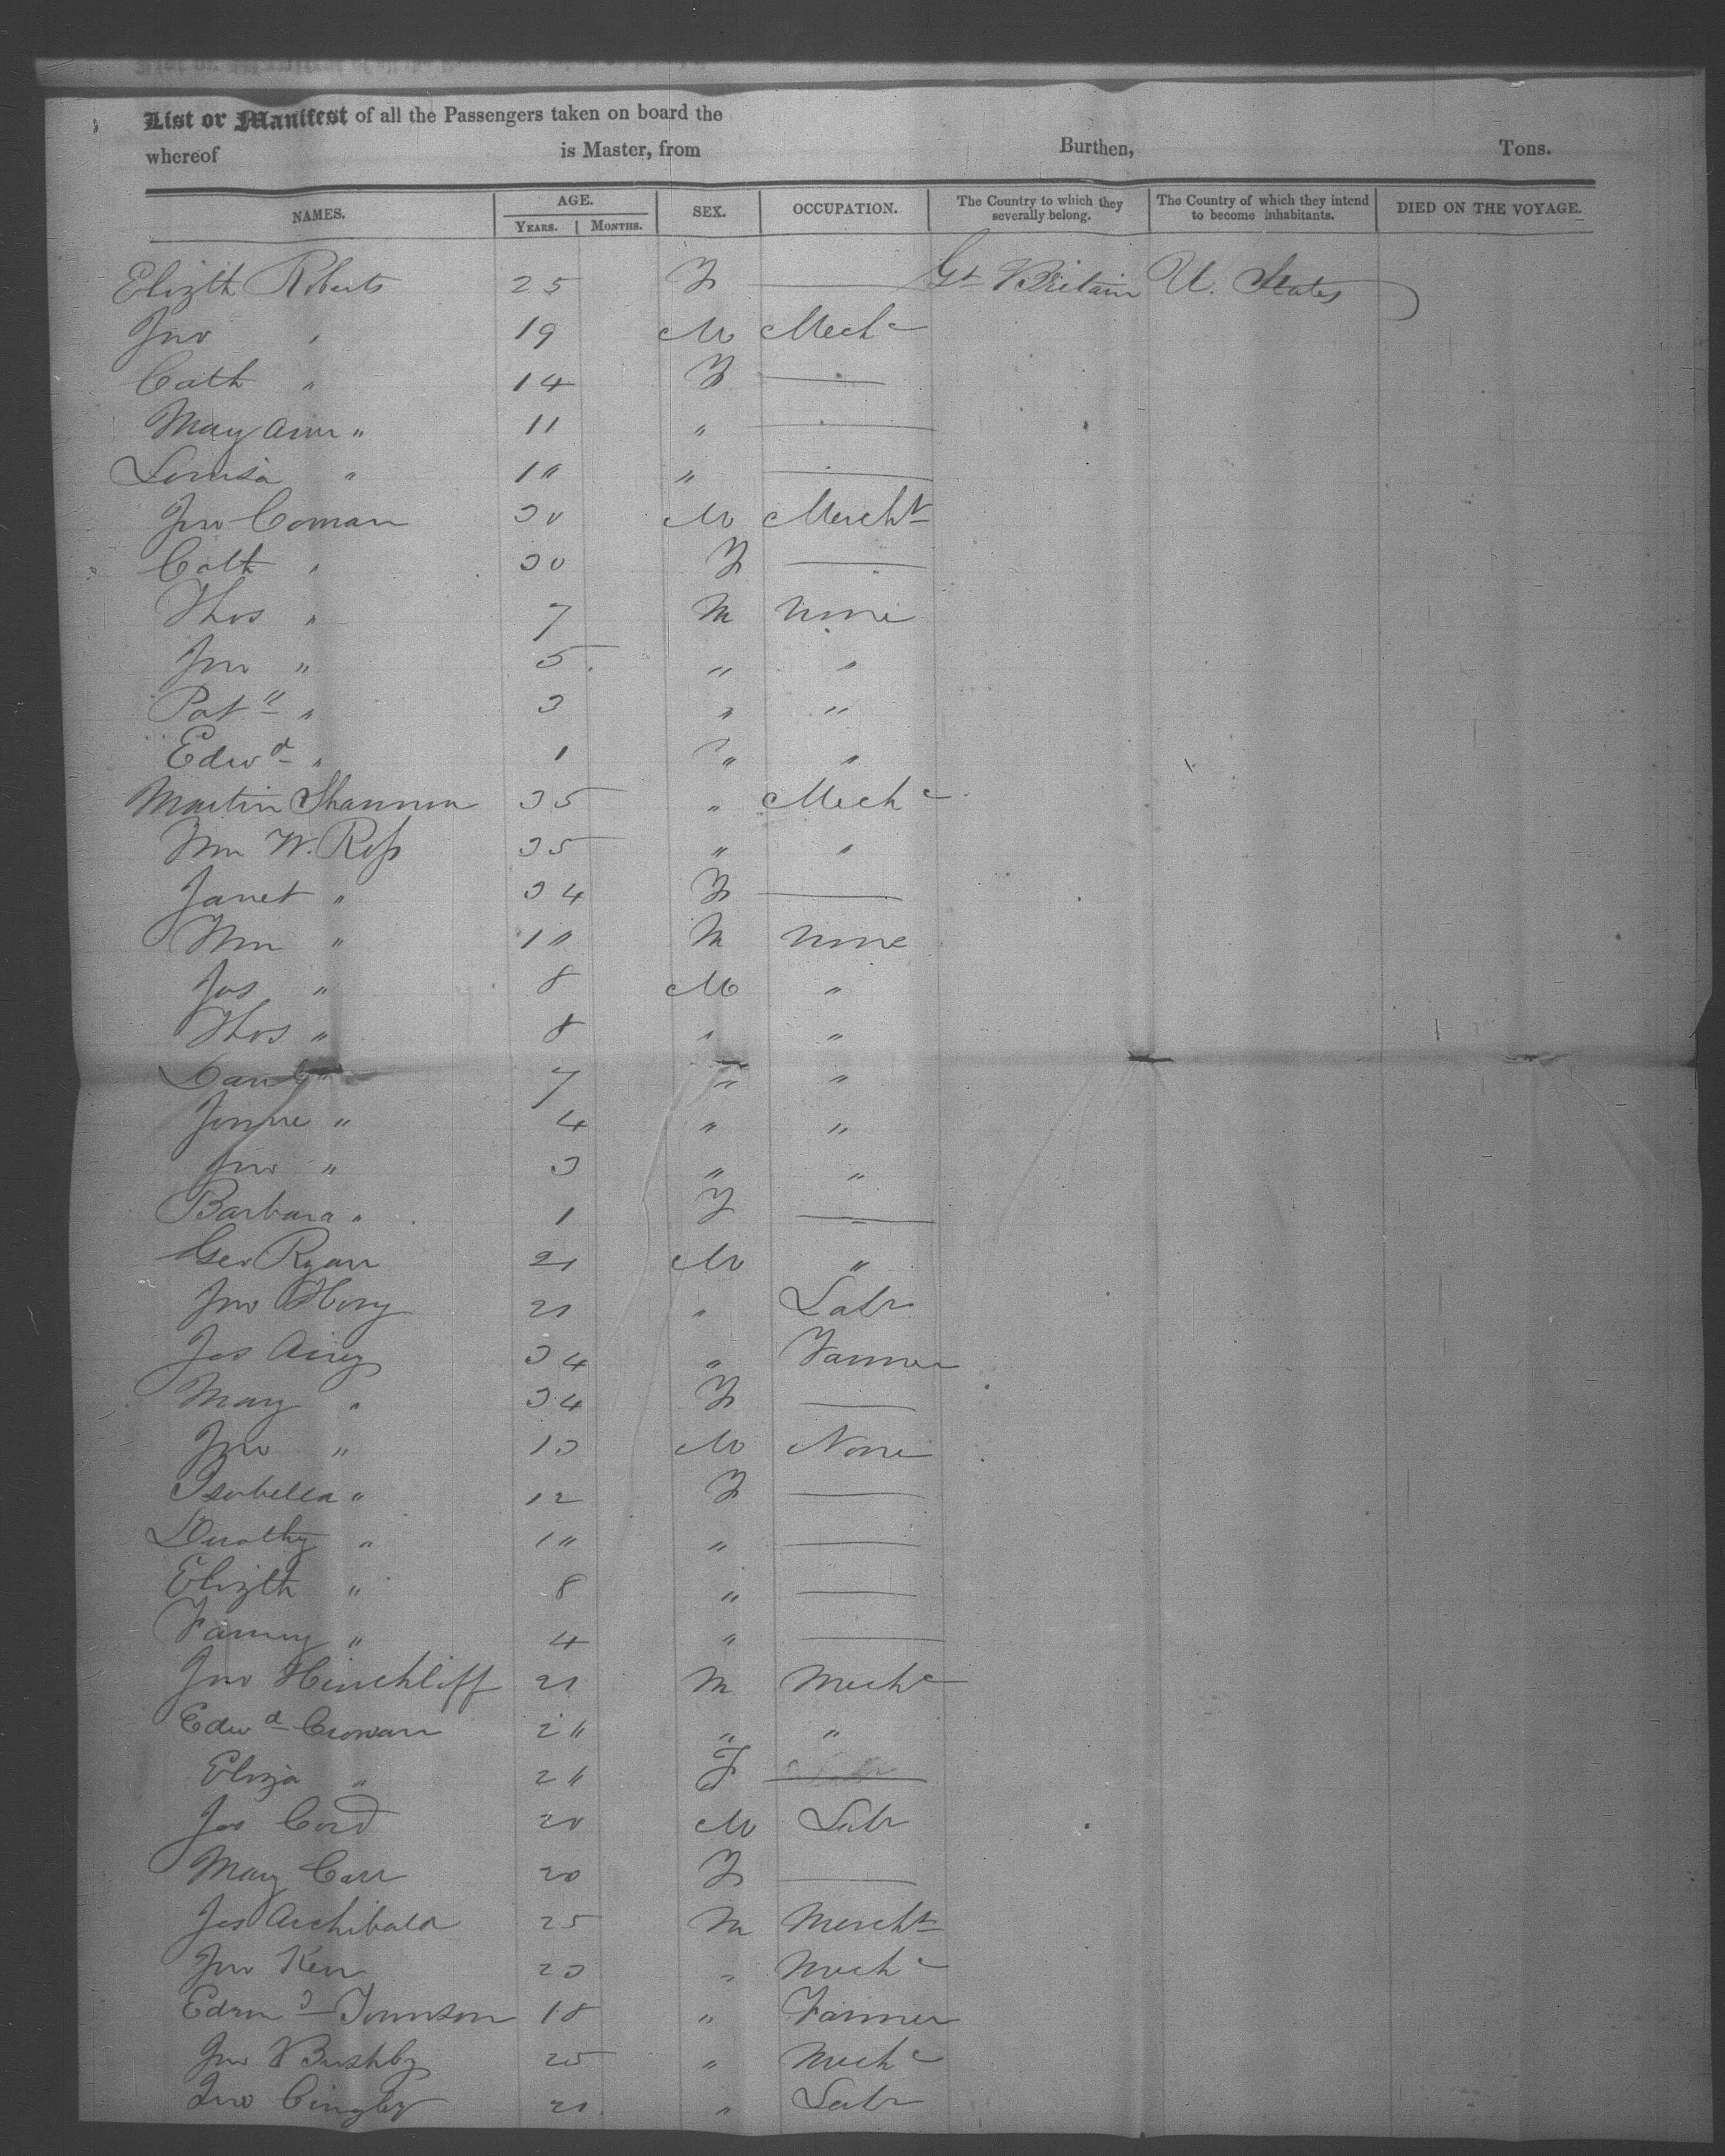 List or Manifest of all the Passengers taken on board the
whereof is Master, from Burthen, Tons.
NAMES. AGE. SEX. OCCUPATION. The Country to which they severally belong. The Country of which they intend to become inhabitants. DIED ON THE VOYAGE.
YEARS. MONTHS.
Elizth Roberts 25 F — Gt Britain U. States
Jno " 19 M Mechc
Cath " 14 F —
Mary Ann " 11 " —
Louisa " 1" " —
Jno Coman 30 M Mercht
Cath " 30 F —
Thos " 7 M None
Jno " 5 " "
Patk " 3 " "
Edwd " 1 " "
Martin Shannon 35 " Mechc
Wm W. Ross 35 " "
Janet " 34 F —
Wm " 1" M None
Jas " 8 M "
Thos " 8 " "
" 7 " "
" 4 " "
Jno " 3 " "
Barbara " 1 F —
Geo Ryan 21 M "
Jno 21 " Labr
Jas Airey 34 " Farmer
Mary " 34 F —
Jno " 13 M None
Isabella " 12 F —
Dorothy " 1" " —
Elizth " 8 " —
Fanny " 4 " —
Jno Hinchliff 21 M Mechc
Edwd Cowan 2" " "
Eliza " 2" F —
Jas Cord 20 M Labr
Mary Carr 20 F —
Jas Archibald 25 M Mercht
Jno Kerr 23 " Mechc
Edmd Townson 18 " Farmer
Jno Bushby 25 " Mechc
Jno 21 " Labr